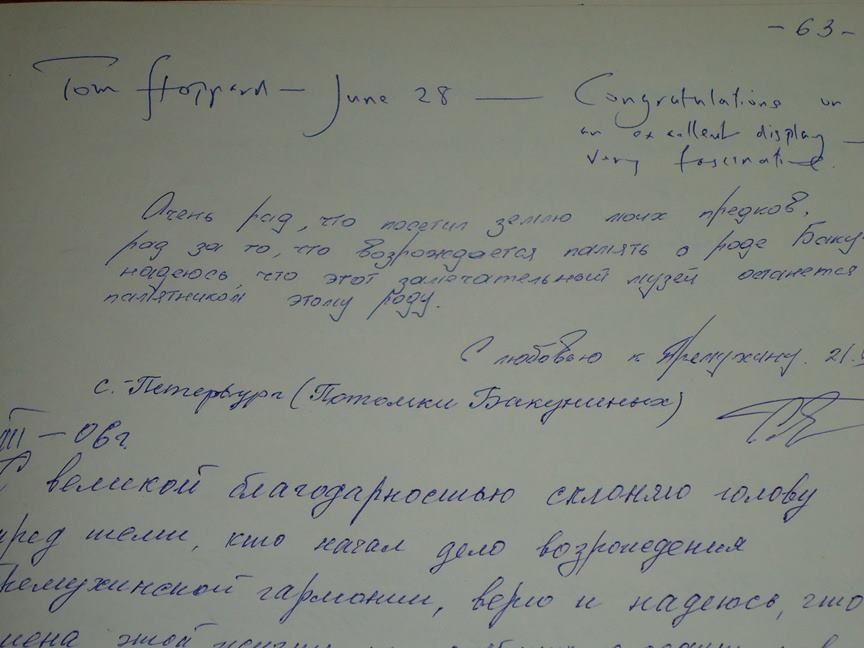 - 63 -
Tom Stoppard — June 28 — Congratulations on
an excellent display —
very fascinating.
Очень рад, что посетил землю моих предков,
рад за то, что возрождается память о роде Баку-
надеюсь, что этот замечательный музей останется
памятником этому роду.
С любовью к Премухину. 21.
с.-Петербург (Потомки Бакуниных)
III - 06г.
С великой благодарностью склоняю голову
пред теми, кто начал дело возрождения
Премухинской гармонии, верю и надеюсь, что
этой